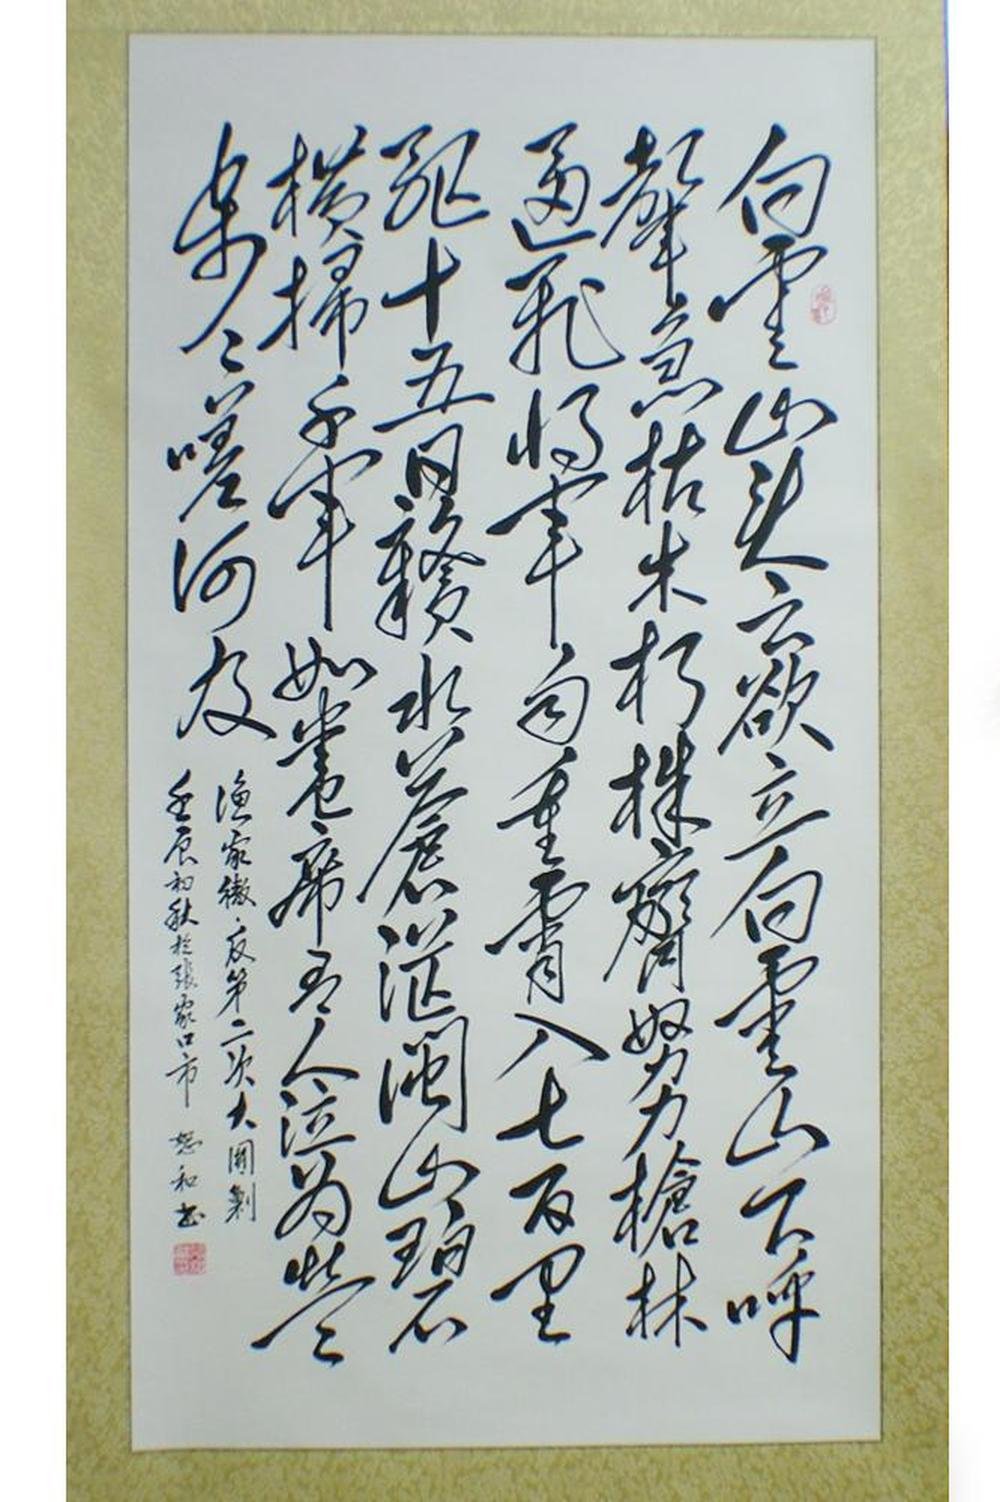 白雲山头云欲立白雲山下呼
聲急枯木朽株齊努力槍林
逼飛将軍自重霄入七百里
驱十五日贛水蒼茫闽山碧
橫掃千軍如卷席有人泣为营
步々嗟何及
渔家傲·反第二次大圍剿
壬辰初秋於張家口市 恕和书